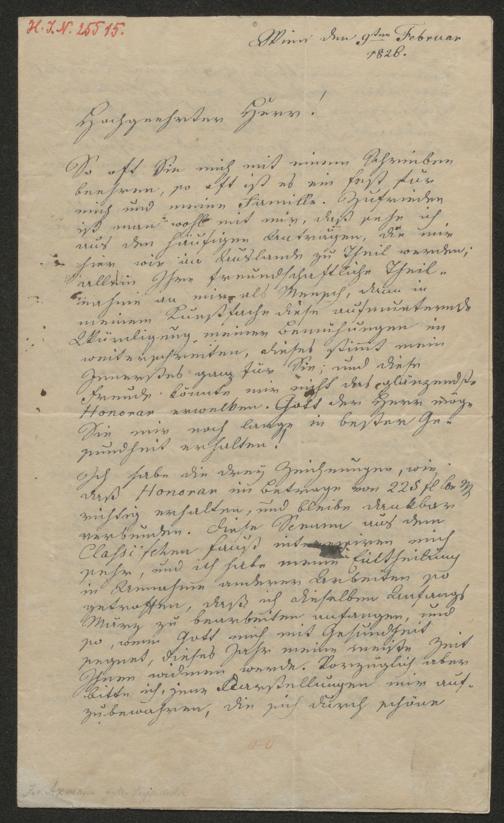 H. I. N. 25515.
Wien den 9ten Februar
1826.
Hochgeehrter Herr!
So oft Sie mich mit einem Schreiben
beehren, so oft ist es ein Fest für
mich und meine Familie. Zufrieden
ist man wohl mit mir, daß sehe ich
aus den häufigen Anträgen, die mir
hier wie im Auslande zu Theil werden;
allein Ihre freundschaftliche Theil-
nahme an mir als Mensch, dann in
meinem Kunstfache diese aufmunternde
Würdigung meiner Bemühungen im
weiterschreiten, dieses stimmt mein
Innerstes ganz für Sie; und diese
Freude könnte mir nicht das glänzendste
Honorar erwecken. Gott der Herr möge
Sie mir noch lange in bester Ge-
sundheit erhalten!
Ich habe die drey Zeichnungen, wie
daß Honorar im Betrage von 225 fl
richtig erhalten, und bleibe dankbar
verbunden. Diese Scenen aus dem
Classischen Faust interessiren mich
sehr, und ich habe meine Eintheilung
in Annahme anderer Arbeiten so
getroffen, daß ich dieselben Anfangs
März zu bearbeiten anfangen, und
so, wenn Gott mich mit Gesundheit
segnet, dieses Jahr meine meiste Zeit
Ihnen widmen werde. Vorzüglich aber
bitte ich, jene Darstellungen mir auf-
zubewahren, die sich durch schöne